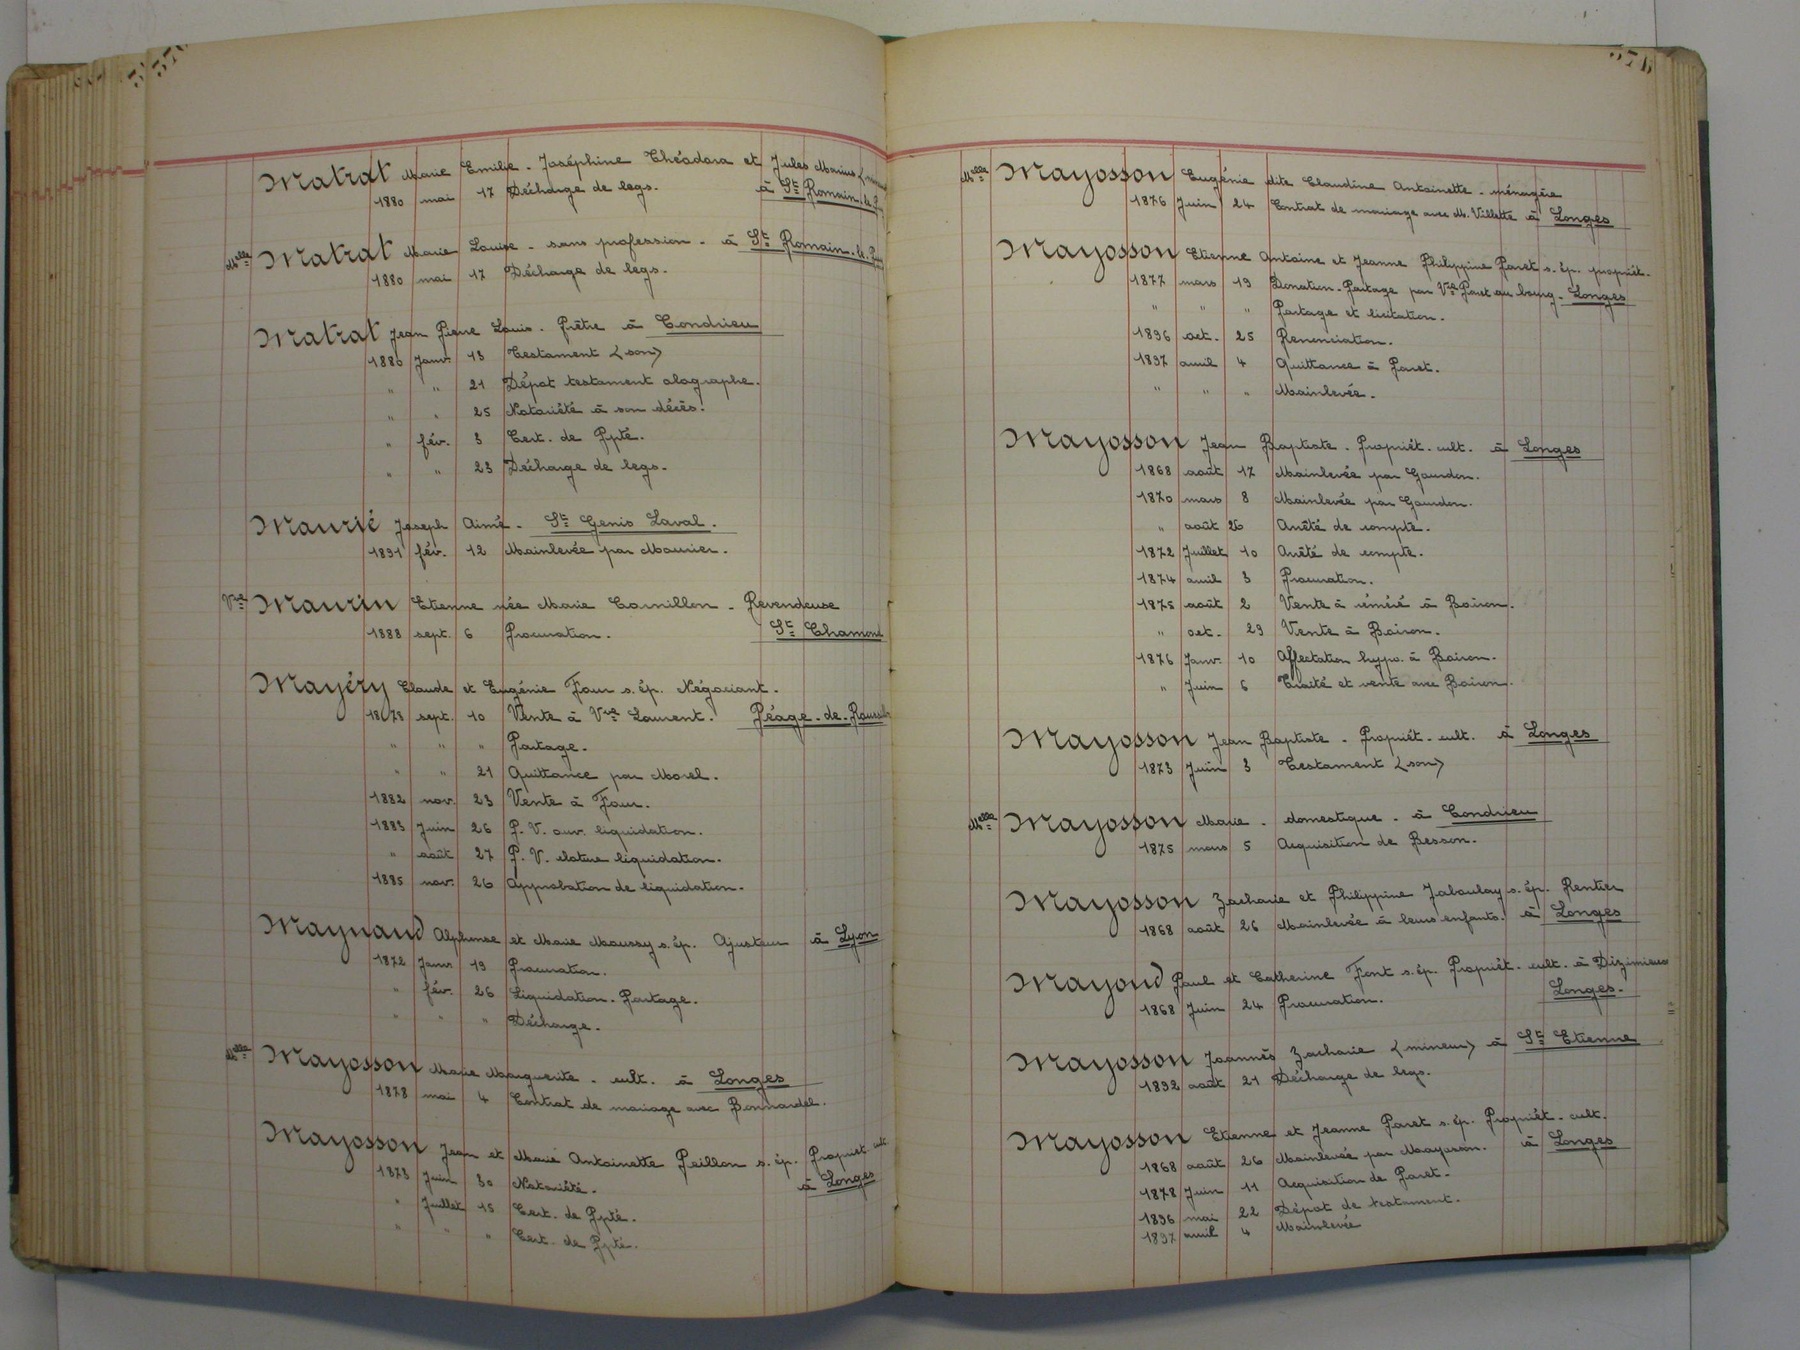 Matrat Marie Emilie - Joséphine Théodora et Jules Marius
1880 mai 17 Décharge de legs. à St Romain
Melle Matrat Marie Louise - sans profession - à St Romain
1880 mai 17 Décharge de legs.
Matrat Jean Pierre Louis. Prêtre à Condrieu
1880 Janv. 13 Testament (son)
" " 21 Dépot testament olographe.
" " 25 Notoriété à son décès.
" fév. 3 Cert. de Ppté.
" " 23 Décharge de legs.
Maurié Joseph Aimé - St Genis Laval.
1891 fév. 12 Mainlevée par Maurier.
Vve Maurin Etienne née Marie Cornillon - Revendeuse
1888 sept. 6 Procuration. St Chamond
Mayéry Claude et Eugénie Four s. ép. Négociant.
1878 sept. 10 Vente à Vve Laurent. Péage-de-Roussillon
" " " Partage.
" " 21 Quittance par Morel.
1882 nov. 23 Vente à Four.
1883 Juin 26 P. V. ouv. liquidation.
" août 27 P. V. cloture liquidation.
1885 nov. 26 Approbation de liquidation.
Maynaud Alphonse et Marie Maussy s. ép. Ajusteur à Lyon
1872 Janv. 19 Procuration.
" fév. 26 Liquidation. Partage.
" " " Décharge.
Melle Mayosson Marie Marguerite - cult. à Longes
1878 mai 4 Contrat de mariage avec Bonnardel.
Mayosson Jean et Marie Antoinette Peillon s. ép. Propriét. cult.
1873 Juin 30 Notoriété. à Longes
" Juillet 15 Cert. de Ppté.
" " " Cert. de Ppté.
376
Melle Mayosson Eugénie dite Claudine Antoinette - ménagère
1876 Juin 24 Contrat de mariage avec M. Villette à Longes
Mayosson Etienne Antoine et Jeanne Philippine Paret s. ép. propriét.
1877 mars 19 Donation-Partage par Vve Paret au bourg - Longes
" " " Partage et licitation.
1896 oct. 25 Renonciation.
1897 avril 4 Quittance à Paret.
" " " Mainlevée.
Mayosson Jean Baptiste - Propriét. cult. à Longes
1868 août 17 Mainlevée par Gaurdon.
1870 mars 8 Mainlevée par Gaurdon.
" août 26 Arrêté de compte.
1872 Juillet 10 Arrêté de compte.
1874 avril 3 Procuration.
1875 août 2 Vente à réméré à Boiron.
" oct. 29 Vente à Boiron.
1876 Janv. 10 Affectation hypo. à Boiron.
" Juin 6 Traité et vente avec Boiron.
Mayosson Jean Baptiste - Propriét. cult. à Longes
1873 Juin 3 Testament (son)
Melle Mayosson Marie - domestique - à Condrieu
1875 mars 5 Acquisition de Besson.
Mayosson Zacharie et Philippine Jaboulay s. ép. Rentier
1868 août 26 Mainlevée à leurs enfants. à Longes
Mayoud Paul et Catherine Font s. ép. Propriét. cult. à Dizimieux
1868 Juin 24 Procuration. Longes.
Mayosson Joannès Zacharie (mineur) à St Etienne
1892 août 21 Décharge de legs.
Mayosson Etienne et Jeanne Paret s. ép. Propriét. cult.
1868 août 26 Mainlevée par Mayosson. à Longes
1878 Juin 11 Acquisition de Paret.
1896 mai 22 Dépot de testament.
1897 avril 4 Mainlevée